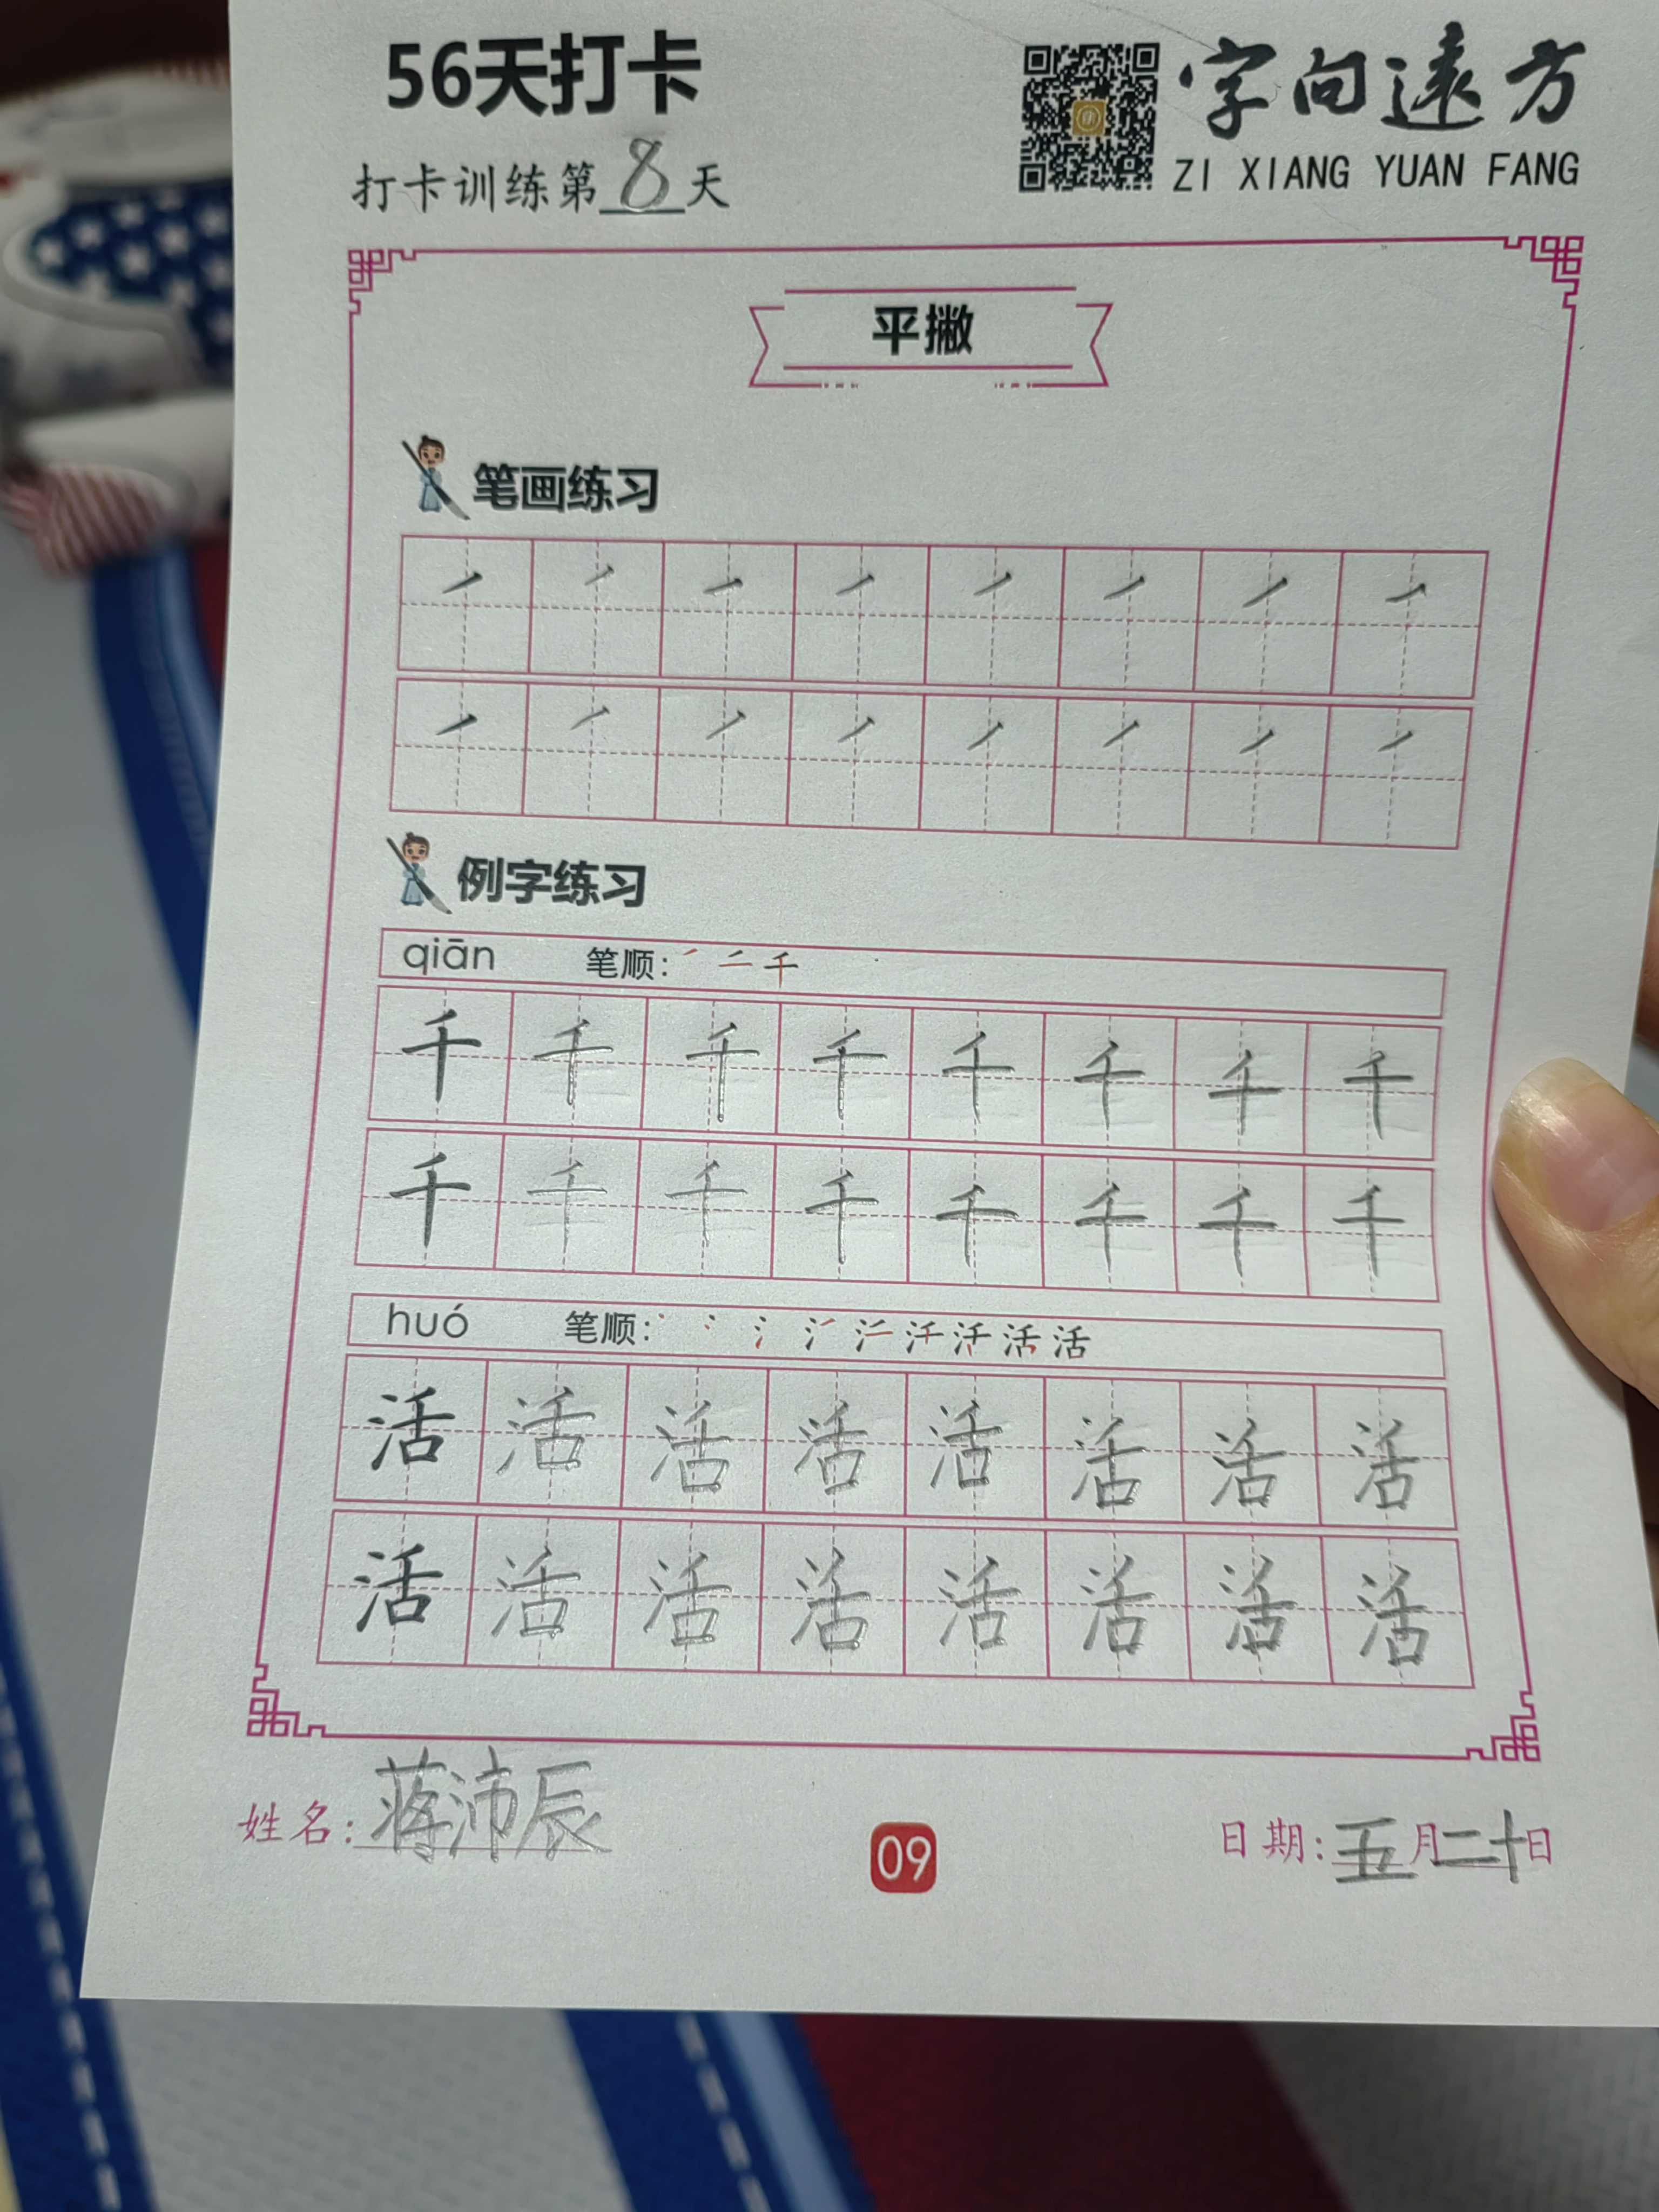 56天打卡
字向遠方
ZI XIANG YUAN FANG
打卡训练第8天
平撇
笔画练习
例字练习
qiān 笔顺:
千 千 千 千 千 千 千 千
千 千 千 千 千 千 千 千
huó 笔顺:
活 活 活 活 活 活 活 活
活 活 活 活 活 活 活 活
姓名:蒋沛辰
09
日期:五月二十日